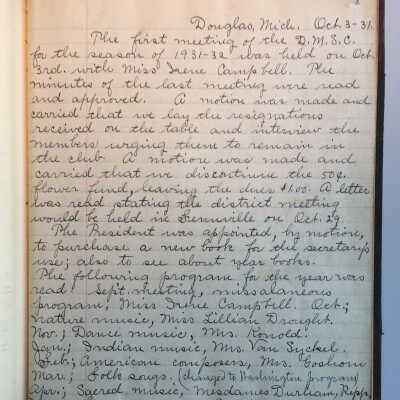 Douglas, Mich. Oct. 3-31.
The first meeting of the D.M.S.C.
for the season of 1931-32 was held on Oct.
3rd. with Miss Irene Campbell. The
minutes of the last meeting were read
and approved. A motion was made and
carried that we lay the resignations
received on the table and interview the
members urging them to remain in
the club. A motion was made and
carried that we discontinue the 50¢
flower fund, leaving the dues $1.00. A letter
was read stating the district meeting
would be held in Fennville on Oct. 29.
The President was appointed, by motion,
to purchase a new book for the secretary's
use; also to see about year books.
The following program for the year was
read. Sept. meeting, missalaneous
program, Miss Irene Campbell. Oct.;
Nature music, Miss Lillian Drought.
Nov.; Dance music, Mrs. Konold.
Jan.; Indian music, Mrs. Van Syckel.
Feb.; American composers, Mrs. Goshorn
Mar.; Folk songs. (changed to Washington program)
Apr.; Sacred music, Mesdames Durham, Ripp,